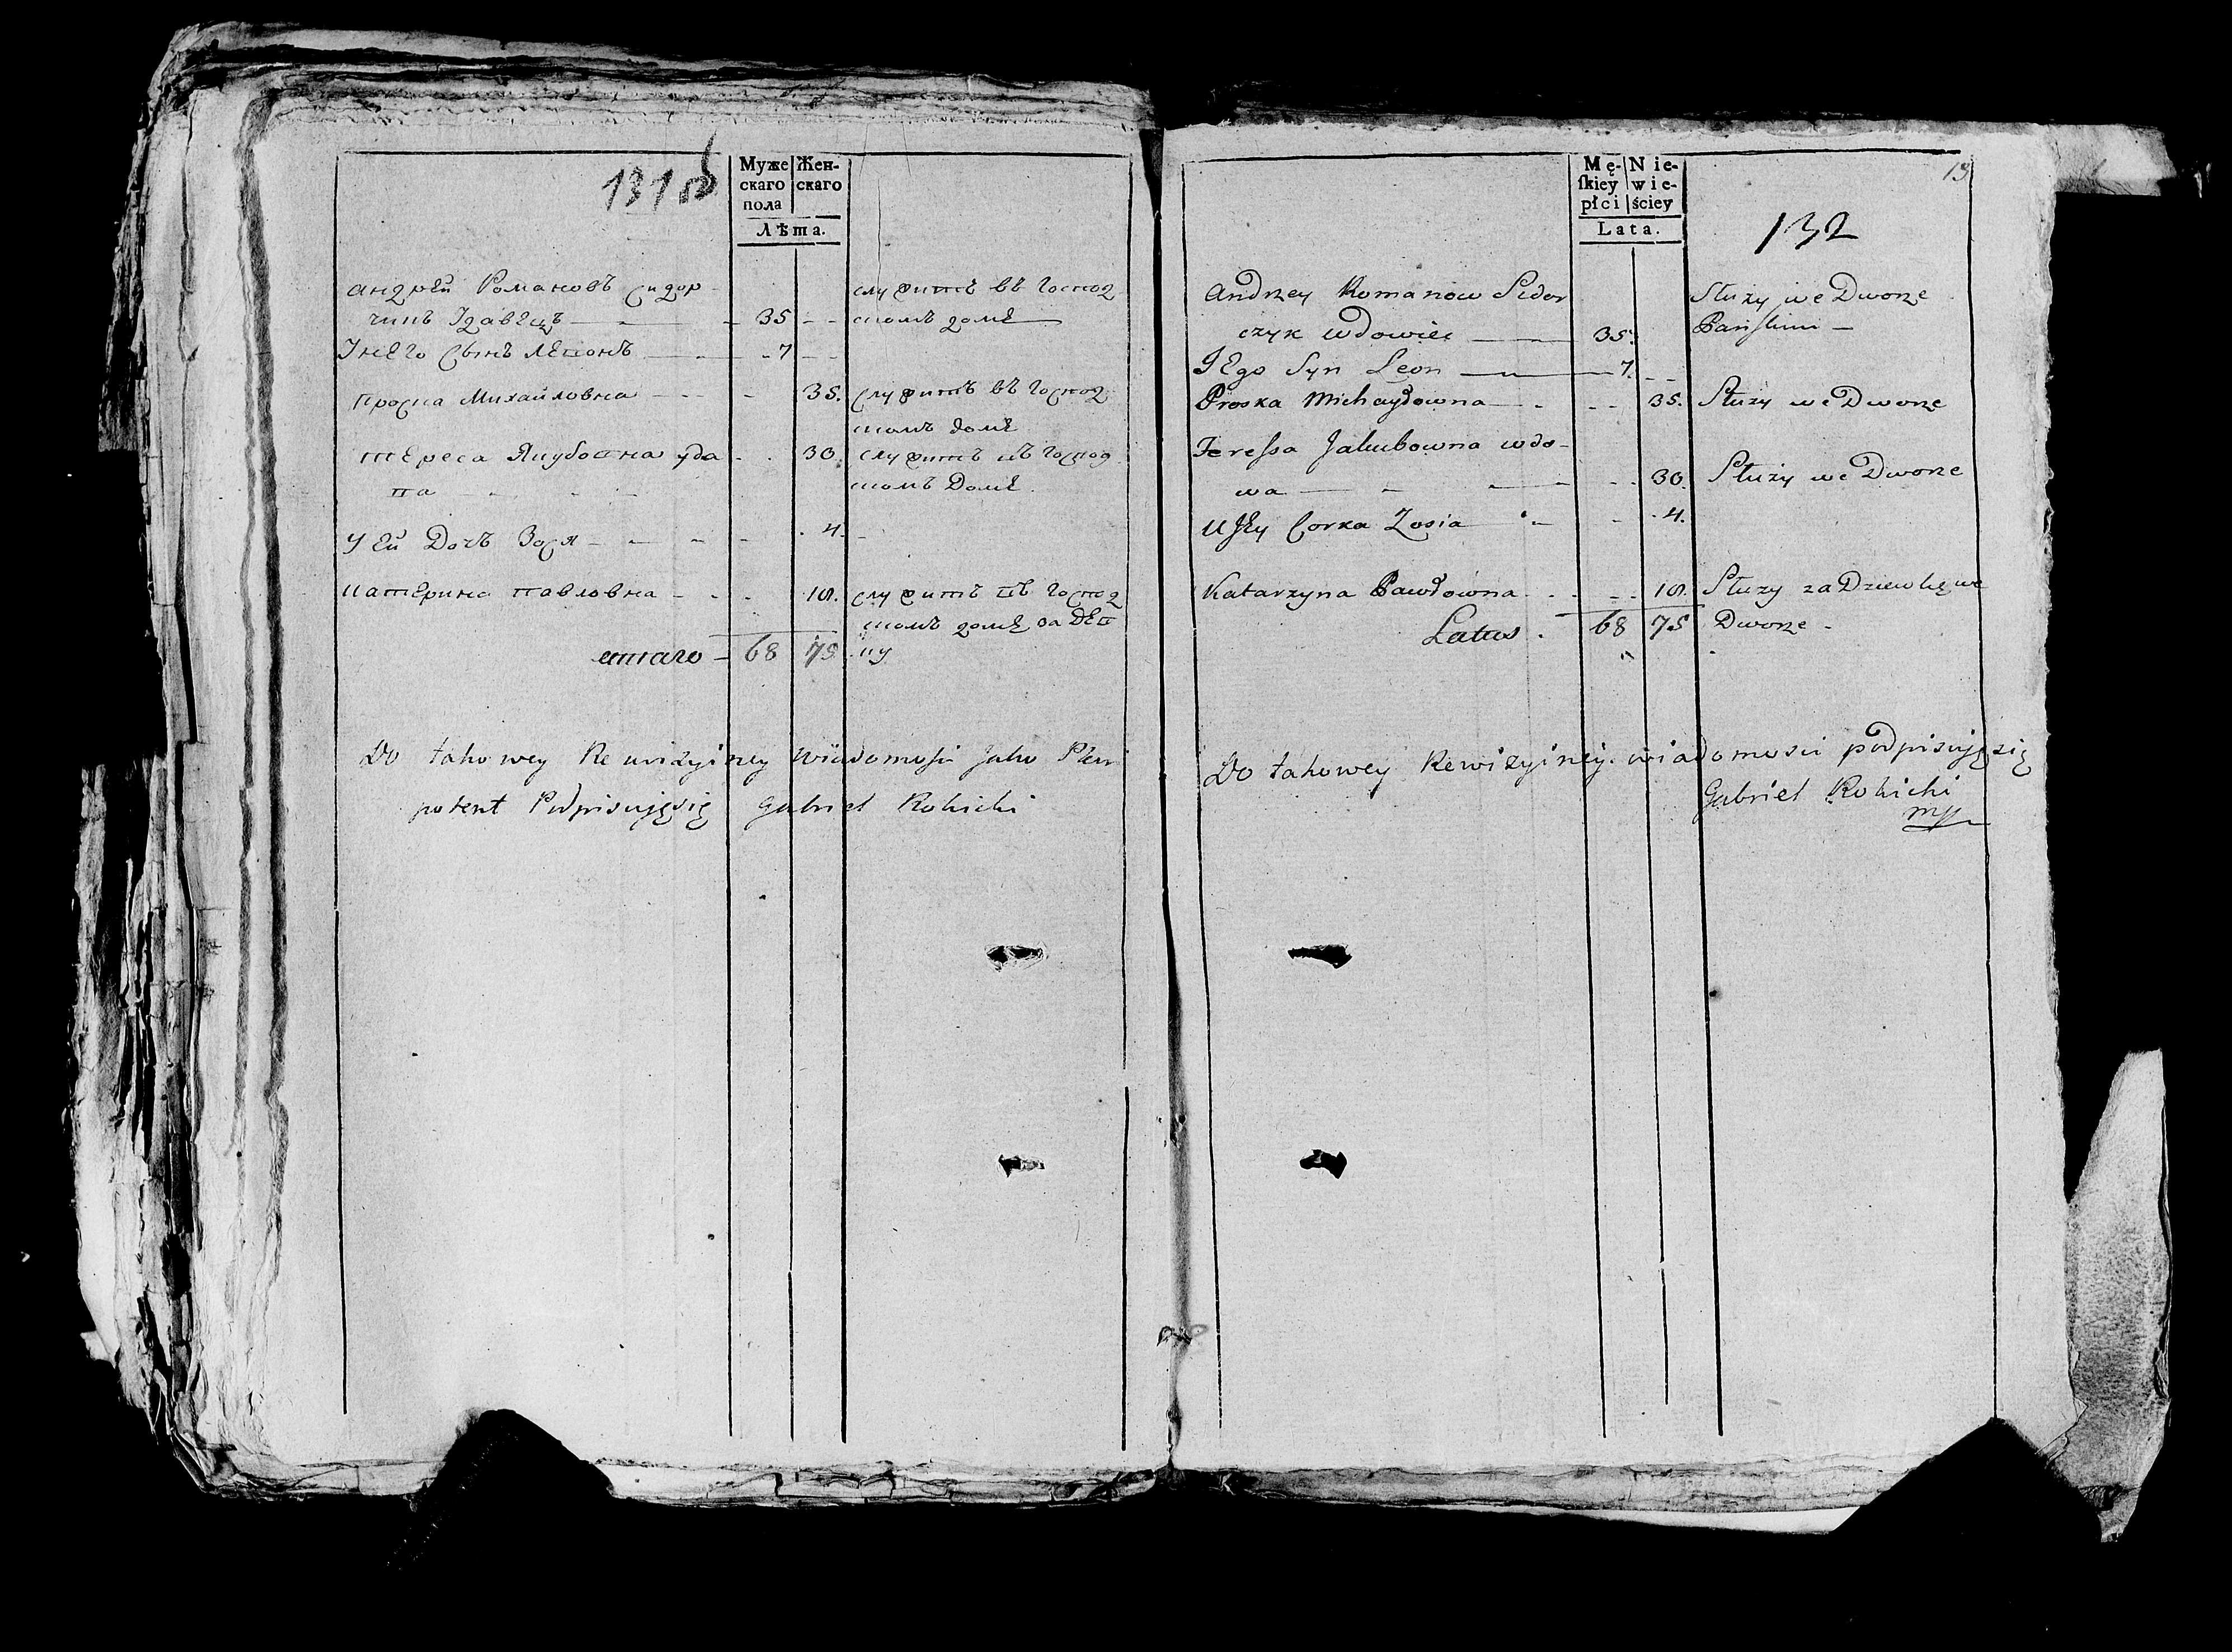 131 об
Муже Жен-
скаго скаго
пола
Лѣта.
Андрей Романовъ Сидор
чикъ Удавецъ 35 служитъ въ господ
скомъ доме
Унего Сынъ Леонъ 7
Проска Михайловна 35. служитъ въ господ
скомъ доме
Тереса Якубовна уда
ва 30. служитъ въ господ
скомъ доме
У ей Дочъ Зося 4.
Катерина Павловна 18. служитъ въ господ
скомъ доме за дев
ку
етаго 68 75
Do takowey Rewizyiney wiadomości Jako Pleni
potent Podpisuję się Gabriel Rokicki
19
132
Mę- Nie-
skiey wie-
płci ściey
Lata.
Andrzey Romanow Sidor
czyk wdowiec 35. Służy we Dworze
Pańskim
JEgo Syn Leon 7.
Proska Michayłowna 35. Służy we Dworze
Teressa Jakubowna wdo-
wa 30. Służy we Dworze
U Jey Corka Zosia 4.
Katarzyna Pawłowna 18. Służy za Dziewkę we
Dworze
Latus 68 75
Do takowey Rewizyiney wiadomosci podpisuję się
Gabriel Rokicki
mp